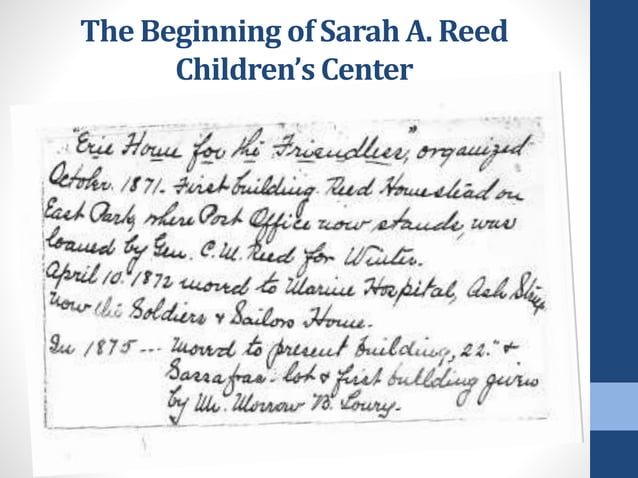 The Beginning of Sarah A. Reed
Children's Center
"Erie Home for the Friendless", organized
October. 1871. First building. Reed Homestead on
East Park, where Post Office now stands, was
loaned by Gen. C. M. Reed for Winter.
April 10. 1872 moved to Marine Hospital, Ash Street
now the Soldiers & Sailors Home.
In 1875 --- moved to present building, 22." &
Sassafras - lot & first building given
by Mr. Morrow B. Lowry.